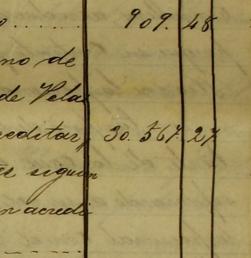 o ........ 909. 48
no de
de Vela
reditar, 30.567. 27
te siguen
n acredi